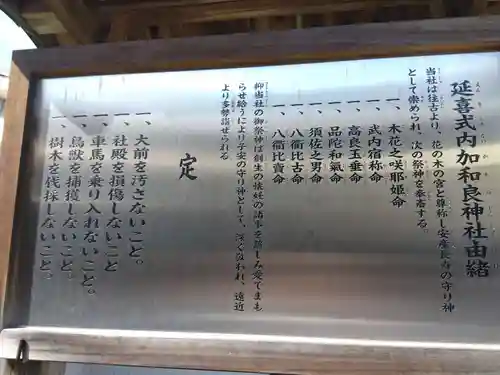 延喜式内加和良神社由緒
当社は往古より、花の木の宮と尊称し安産長寿の守り神
として崇められ、次の祭神を奉斎する。
一、木花之咲耶姫命
一、武内宿称命
一、高良玉垂命
一、品陀和氣命
一、須佐之男命
一、八衢比古命
一、八衢比賣命
抑当社の御祭神は創生の懐妊の諸事を慈しみ愛でまも
らせ給うにより子安の守り神として、深く敬われ、遠近
より多勢詣せられる
定
一、大前を汚さないこと。
一、社殿を損傷しないこと
一、車馬を乗り入れないこと。
一、鳥獣を捕獲しないこと。
一、樹木を伐採しないこと。